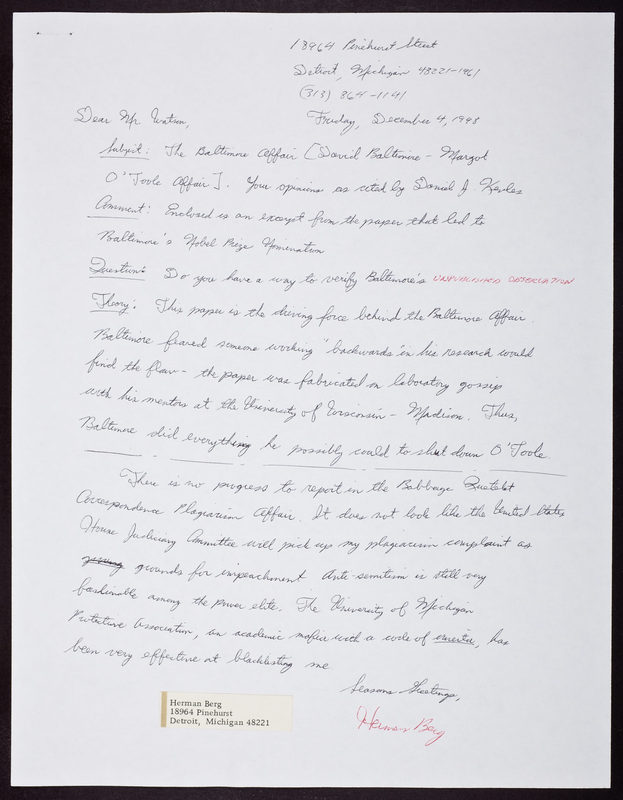 18964 Pinehurst Street
Detroit, Michigan 48221-1961
(313) 864-1141
Friday, December 4, 1998
Dear Mr Watson,
Subject: The Baltimore Affair [David Baltimore - Margot
O'Toole Affair]. Your opinions as cited by Daniel J. Kevles
Comment: Enclosed is an excerpt from the paper that led to
Baltimore's Nobel Prize Nomination
Question: Do you have a way to verify Baltimore's UNPUBLISHED OBSERVATION
Theory: This paper is the driving force behind the Baltimore Affair.
Baltimore feared someone working "backwards" in his research would
find the flaw - the paper was fabricated on laboratory gossip
with his mentors at the University of Wisconsin - Madison. Thus,
Baltimore did everything he possibly could to shut down O'Toole.
There is no progress to report in the Babbage Quetelet
Correspondence Plagiarism Affair. It does not look like the United States
House Judiciary Committee will pick up my plagiarism complaint as
grounds for impeachment Anti-semitism is still very
fashionable among the power elite. The University of Michigan
Protective Association, an academic mafia with a code of omerta, has
been very effective at blacklisting me
Seasons Greetings,
Herman Berg
Herman Berg
18964 Pinehurst
Detroit, Michigan 48221